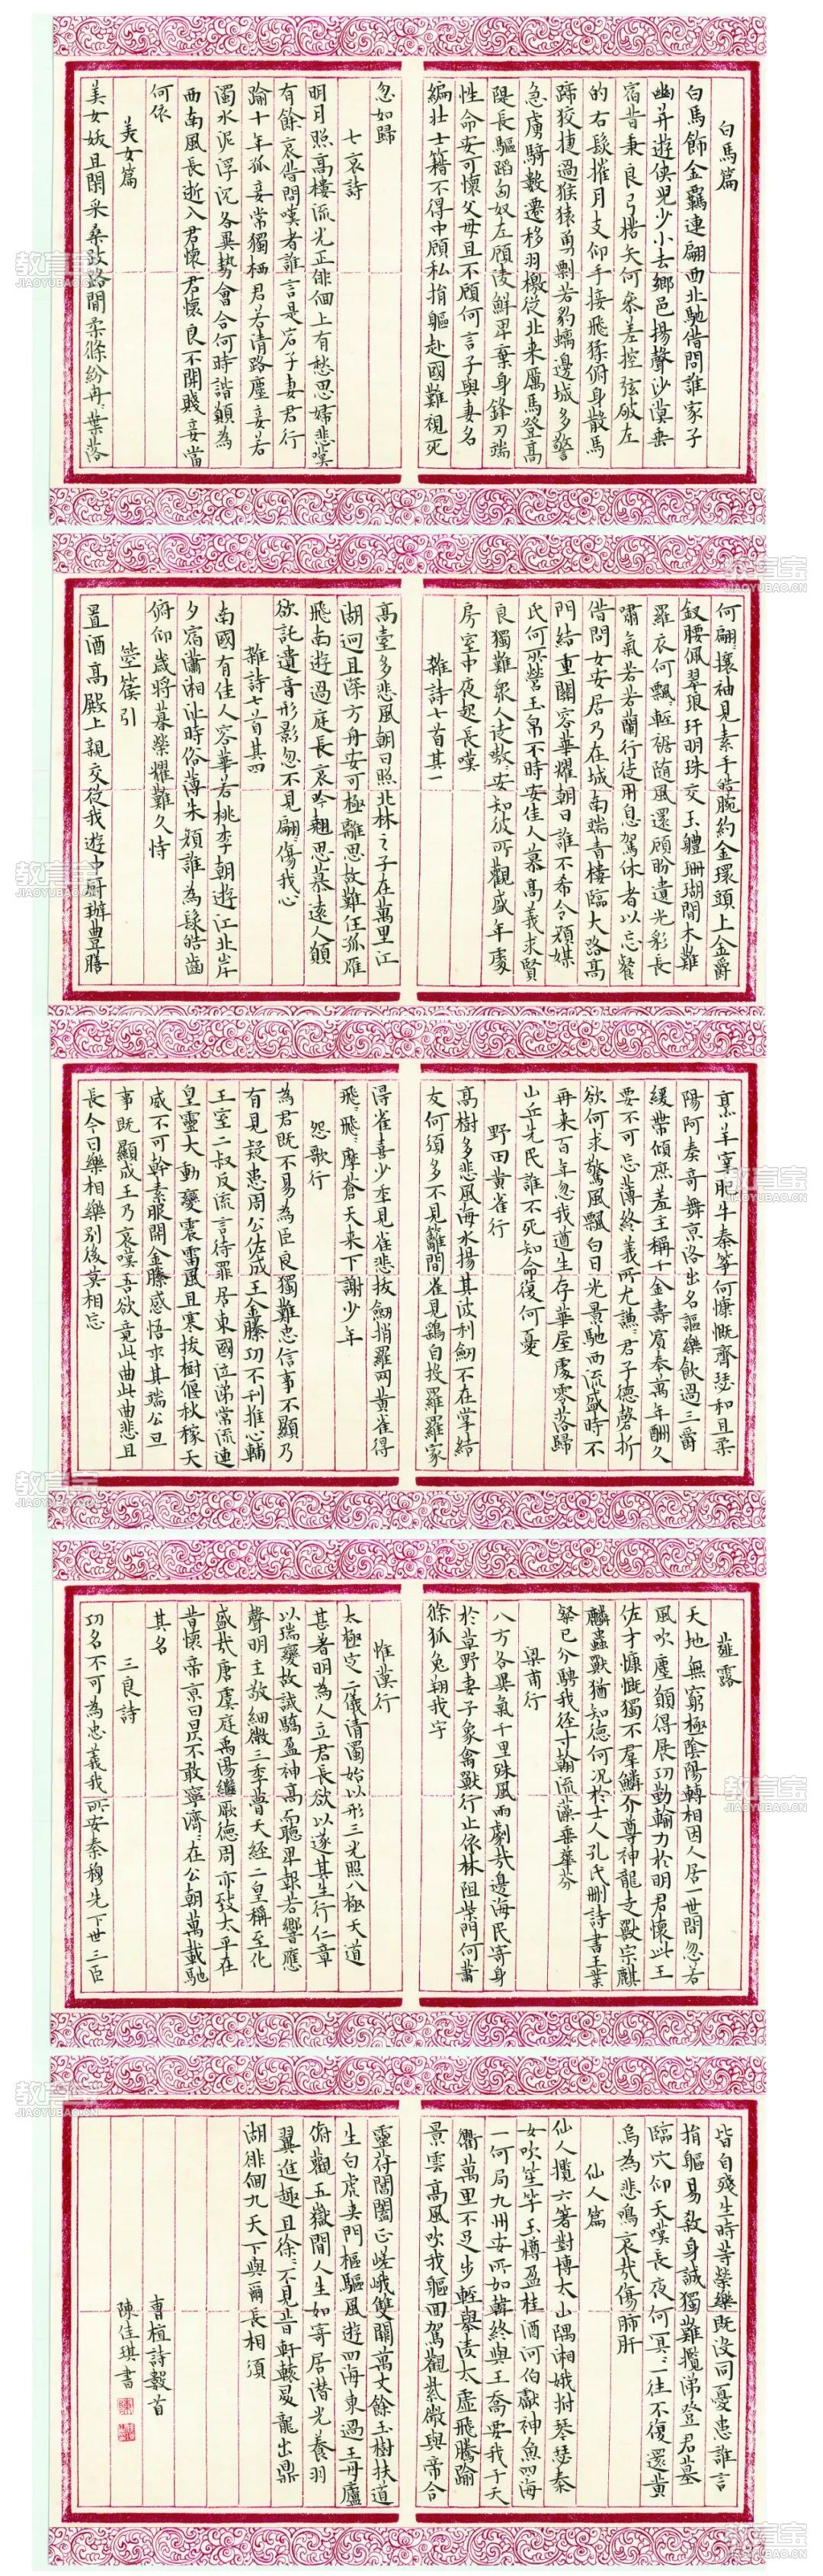 白馬篇
白馬飾金羈連翩西北馳借問誰家子
幽并遊俠兒少小去鄉邑揚聲沙漠垂
宿昔秉良弓楛矢何參差控弦破左
的右發摧月支仰手接飛猱俯身散馬
蹄狡捷過猴猿勇剽若豹螭邊城多警
急虜騎數遷移羽檄從北来厲馬登高
隄長驅蹈匈奴左顧陵鮮卑棄身鋒刃端
性命安可懷父母且不顧何言子與妻名
編壮士籍不得中顧私捐軀赴國難視死
忽如歸
七哀詩
明月照高樓流光正徘徊上有愁思婦悲嘆
有餘哀借問嘆者誰言是宕子妻君行
踰十年孤妾常獨栖君若清路塵妾若
濁水泥浮沉各異勢會合何時諧願為
西南風長逝入君懷君懷良不開賤妾當
何依
美女篇
美女妖且閑采桑歧路間柔條紛冉〻葉落
何翩〻攘袖見素手皓腕約金環頭上金爵
釵腰佩翠琅玕明珠交玉體珊瑚間木難
羅衣何飄〻輕裾隨風還顧盼遺光彩長
嘯氣若若蘭行徒用息駕休者以忘餐
借問女安居乃在城南端青樓臨大路高
門結重關容華耀朝日誰不希令顏媒
氏何所營玉帛不時安佳人慕高義求賢
良獨難衆人徒嗷〻安知彼所觀盛年處
房室中夜起長嘆
雜詩七首其一
高臺多悲風朝日照北林之子在萬里江
湖迥且深方舟安可極離思故難任孤雁
飛南遊過庭長哀吟翹思慕遠人願
欲託遺音形影忽不見翩〻傷我心
雜詩七首其四
南國有佳人容華若桃李朝遊江北岸
夕宿瀟湘沚時俗薄朱顏誰為發皓齒
俯仰歲將暮榮耀難久恃
箜篌引
置酒高殿上親交從我遊中厨辦豐膳
烹羊宰肥牛秦箏何慷慨齊瑟和且柔
陽阿奏奇舞京洛出名謳樂飲過三爵
緩帶傾庶羞主稱千金壽賓奉萬年酬久
要不可忘薄終義所尤謙〻君子德磬折
欲何求驚風飄白日光景馳西流盛時不
再来百年忽我遒生存華屋處零落歸
山丘先民誰不死知命復何憂
野田黄雀行
高樹多悲風海水揚其波利劍不在掌結
友何須多不見籬間雀見鷂自投羅羅家
得雀喜少年見雀悲拔劍捎羅网黄雀得
飛〻飛〻摩蒼天来下謝少年
怨歌行
為君既不易為臣良獨難忠信事不顯乃
有見疑患周公佐成王金縢功不刊推心輔
王室二叔反流言待罪居東國泣涕常流連
皇靈大動變震雷風且寒拔樹偃秋稼天
威不可幹素服開金縢感悟求其端公旦
事既顯成王乃哀嘆吾欲竟此曲此曲悲且
長今日樂相樂别後莫相忘
薤露
天地無窮極陰陽轉相因人居一世間忽若
風吹塵願得展功勤輸力於明君懷此王
佐才慷慨獨不羣鱗介尊神龍走獸宗麒
麟蟲獸猶知德何況於士人孔氏删詩書王業
粲已分騁我徑寸翰流藻垂華芬
梁甫行
八方各異氣千里殊風雨劇哉邊海民寄身
於草野妻子象禽獸行止依林阻柴門何蕭
條狐兔翔我宇
惟漢行
太極定二儀清濁始以形三光照八極天道
甚著明為人立君長欲以遂其生行仁章
以瑞變故誡驕盈神高而聽卑報若響應
聲明主敬細微三季瞢天經二皇稱至化
盛哉唐虞庭禹湯繼厥德周亦致太平在
昔懷帝京日昃不敢寧濟〻在公朝萬載馳
其名
三良詩
功名不可為忠義我所安秦穆先下世三臣
皆自殘生時等榮樂既没同憂患誰言
捐軀易殺身誠獨難攬涕登君墓
臨穴仰天嘆長夜何冥〻一往不復還黄
鳥為悲鳴哀哉傷肺肝
仙人篇
仙人攬六箸對博太山隅湘娥拊琴瑟秦
女吹笙竽玉樽盈桂酒河伯獻神魚四海
一何局九州安所如韓終與王喬要我于天
衢萬里不足步輕舉凌太虚飛騰踰
景雲高風吹我軀回駕觀紫微與帝合
靈符閶闔正嵯峨雙闕萬丈餘玉樹扶道
生白虎夾門樞驅風遊四海東過王母廬
俯觀五嶽間人生如寄居潜光養羽
翼進趣且徐〻不見昔軒轅昇龍出鼎
湖徘徊九天下與爾長相須
曹植詩數首
陳佳琪書